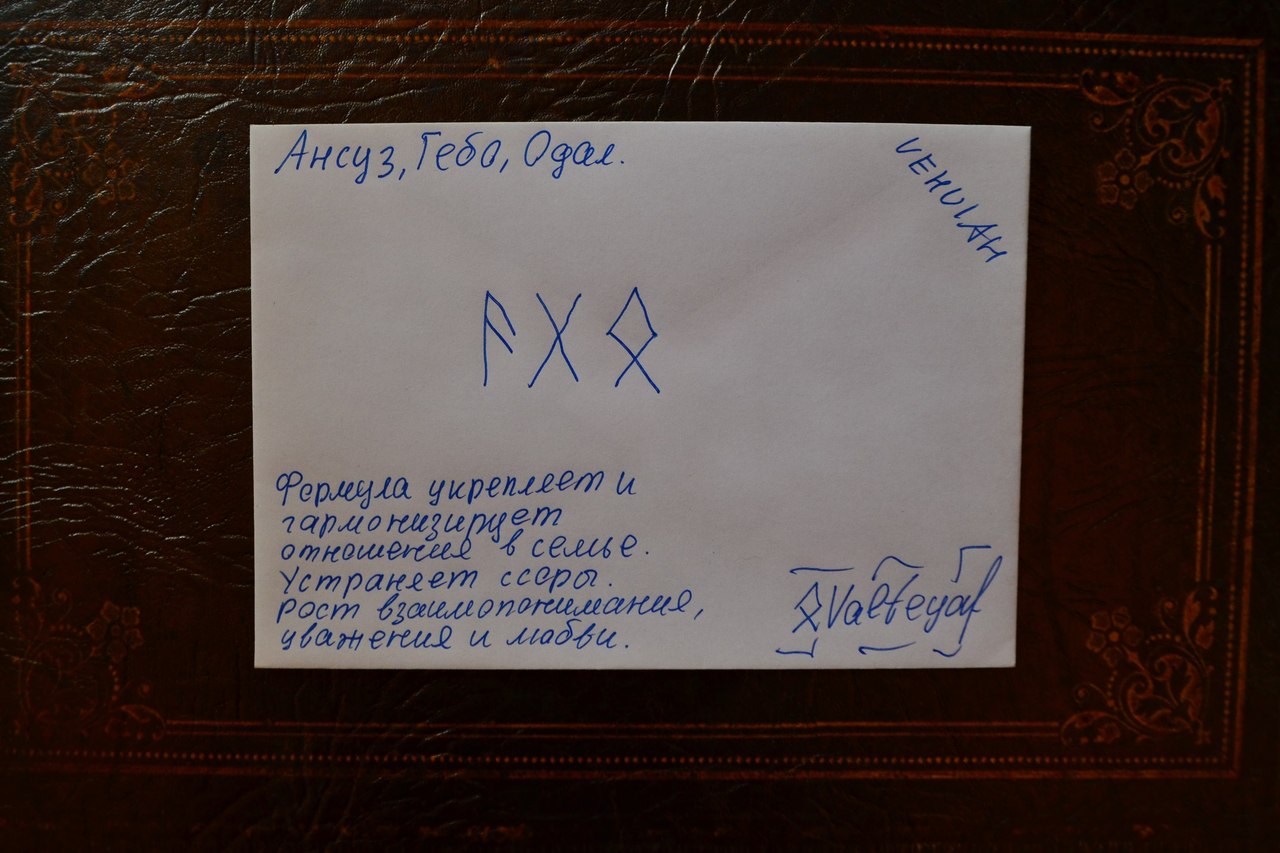 Ансуз, Гебо, Одал.
VEHUIAH
ᚨ ᚷ ᛟ
Формула укрепляет и
гармонизирует
отношения в семье.
Устраняет ссоры.
Рост взаимопонимания,
уважения и любви.
ᛟValteyaf